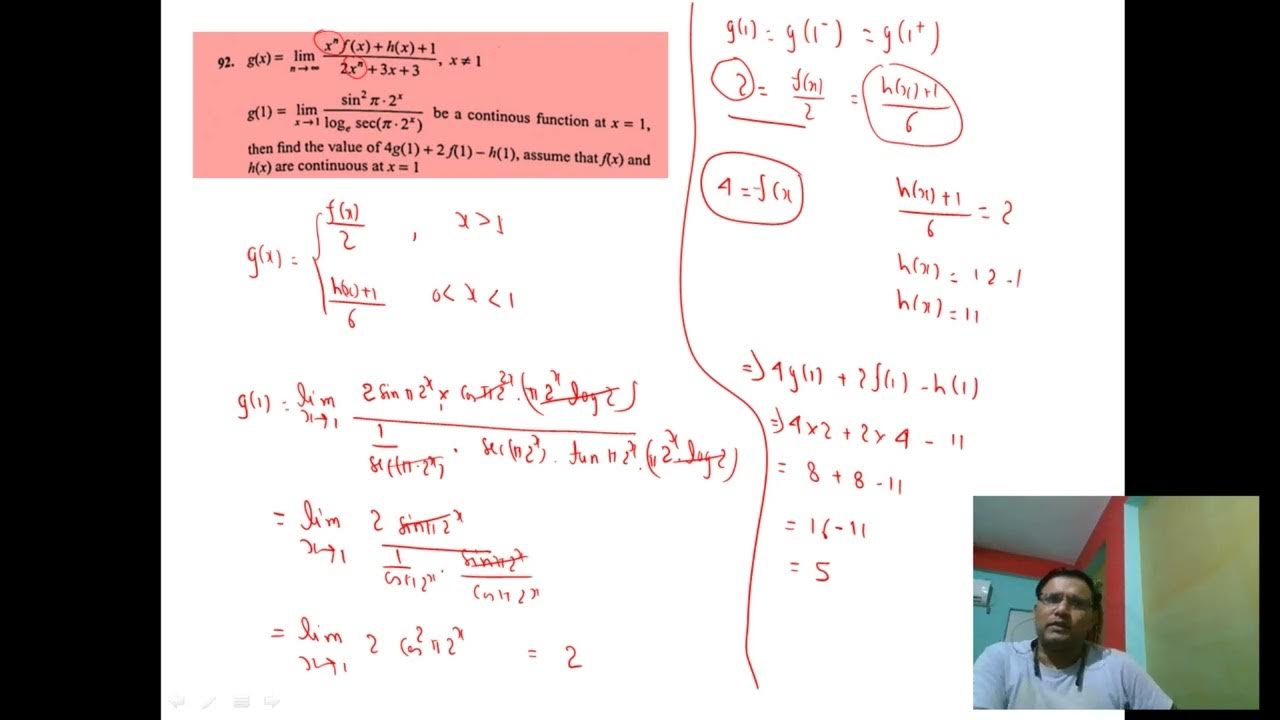 92. g(x) = lim n→∞ (xⁿ f(x) + h(x) + 1)/(2xⁿ + 3x + 3), x ≠ 1
g(1) = lim x→1 (sin² π · 2ˣ)/(logₑ sec(π · 2ˣ)) be a continous function at x = 1,
then find the value of 4g(1) + 2 f(1) − h(1), assume that f(x) and
h(x) are continuous at x = 1
g(x) = { f(x)/2 , x > 1
h(x)+1/6 0 < x < 1
g(1) = lim x→1 (2 sin π2ˣ × cos π2ˣ · (π 2ˣ log 2))/(1/sec(π·2ˣ) · sec(π2ˣ) · tan π2ˣ · (π 2ˣ · log 2))
= lim x→1 (2 sin π2ˣ)/(1/cos π2ˣ · sin π2ˣ/cos π2ˣ)
= lim x→1 2 cos² π2ˣ = 2
g(1) = g(1⁻) = g(1⁺)
2 = f(x)/2 = (h(x)+1)/6
4 = f(x
(h(x)+1)/6 = 2
h(x) = 12 - 1
h(x) = 11
⇒ 4g(1) + 2f(1) - h(1)
⇒ 4×2 + 2×4 - 11
= 8 + 8 - 11
= 16 - 11
= 5